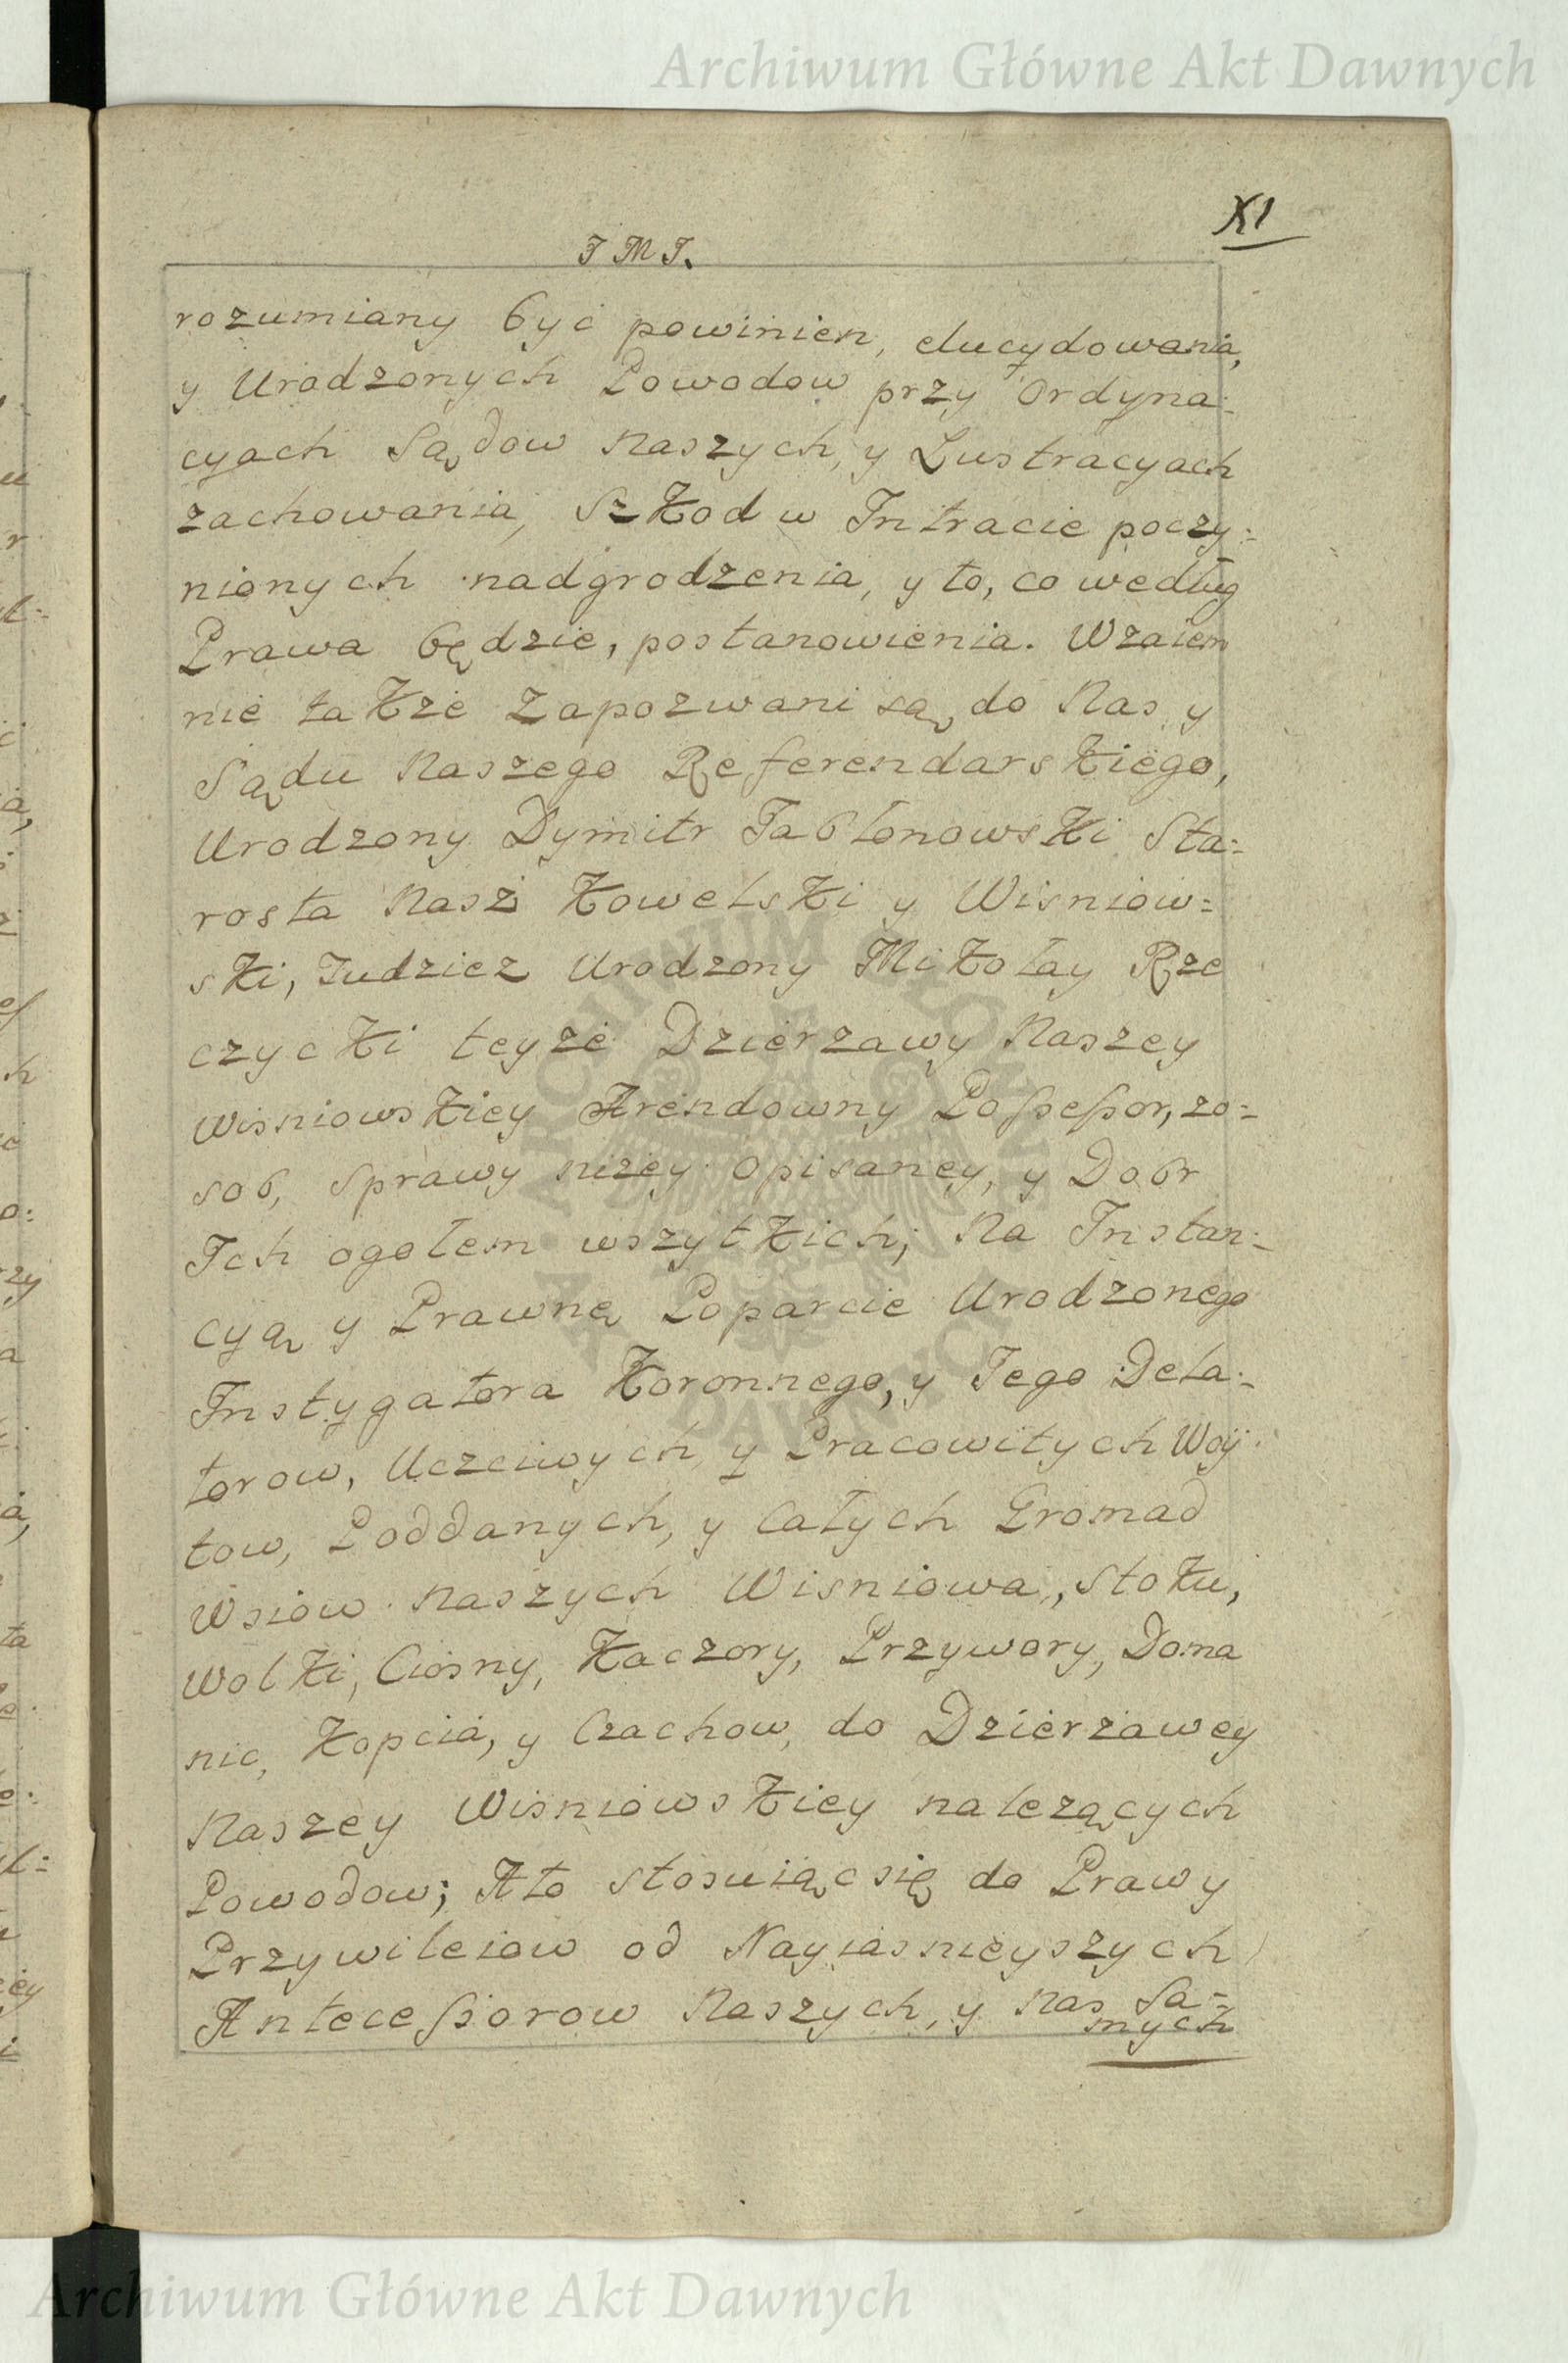 Archiwum Główne Akt Dawnych
XI
J M J.
rozumiany być powinien, elucydowania,
y Urodzonych Powodow przy Ordyna:
cyach Sądow Naszych, y Lustracyach
zachowania, Szkod w Intracie poczy:
nionych nadgrodzenia, y to, co według
Prawa będzie, postanowienia. Wzaiem
nie także zapozwani są do Nas y
Sądu Naszego Referendarskiego,
Urodzony Dymitr Jabłonowski Sta:
rosta Nasz Kowelski y Wisniow:
ski, tudziez Urodzony Mikołay Rze
czycki teyże Dzierzawy Naszey
Wisniowskiey Arendowny Possessor, zo:
sob, sprawy niżey opisaney, y Dobr
Ich ogołem wszytkich; Na Instan:
cyą y Prawnę Poparcie Urodzonego
Instygatora Koronnego, y Jego Dela:
torow, Uczciwych y Pracowitych Woy
tow, Poddanych, y Całych Gromad
Wsiow Naszych Wisniowa, Stoku,
Wolki, Ciosny, Kaczory, Przywory, Doma
nic, Kopcia, y Czachow, do Dzierżawey
Naszey Wisniowskiey nalezących
Powodow; A to stosuiąc się do Prawy
Przywileiow od Nayiasnieyszych
Antecessorow Naszych, y Nas Sa=
mych
ARCHIWUM GŁÓWNE AKT DAWNYCH
Archiwum Główne Akt Dawnych